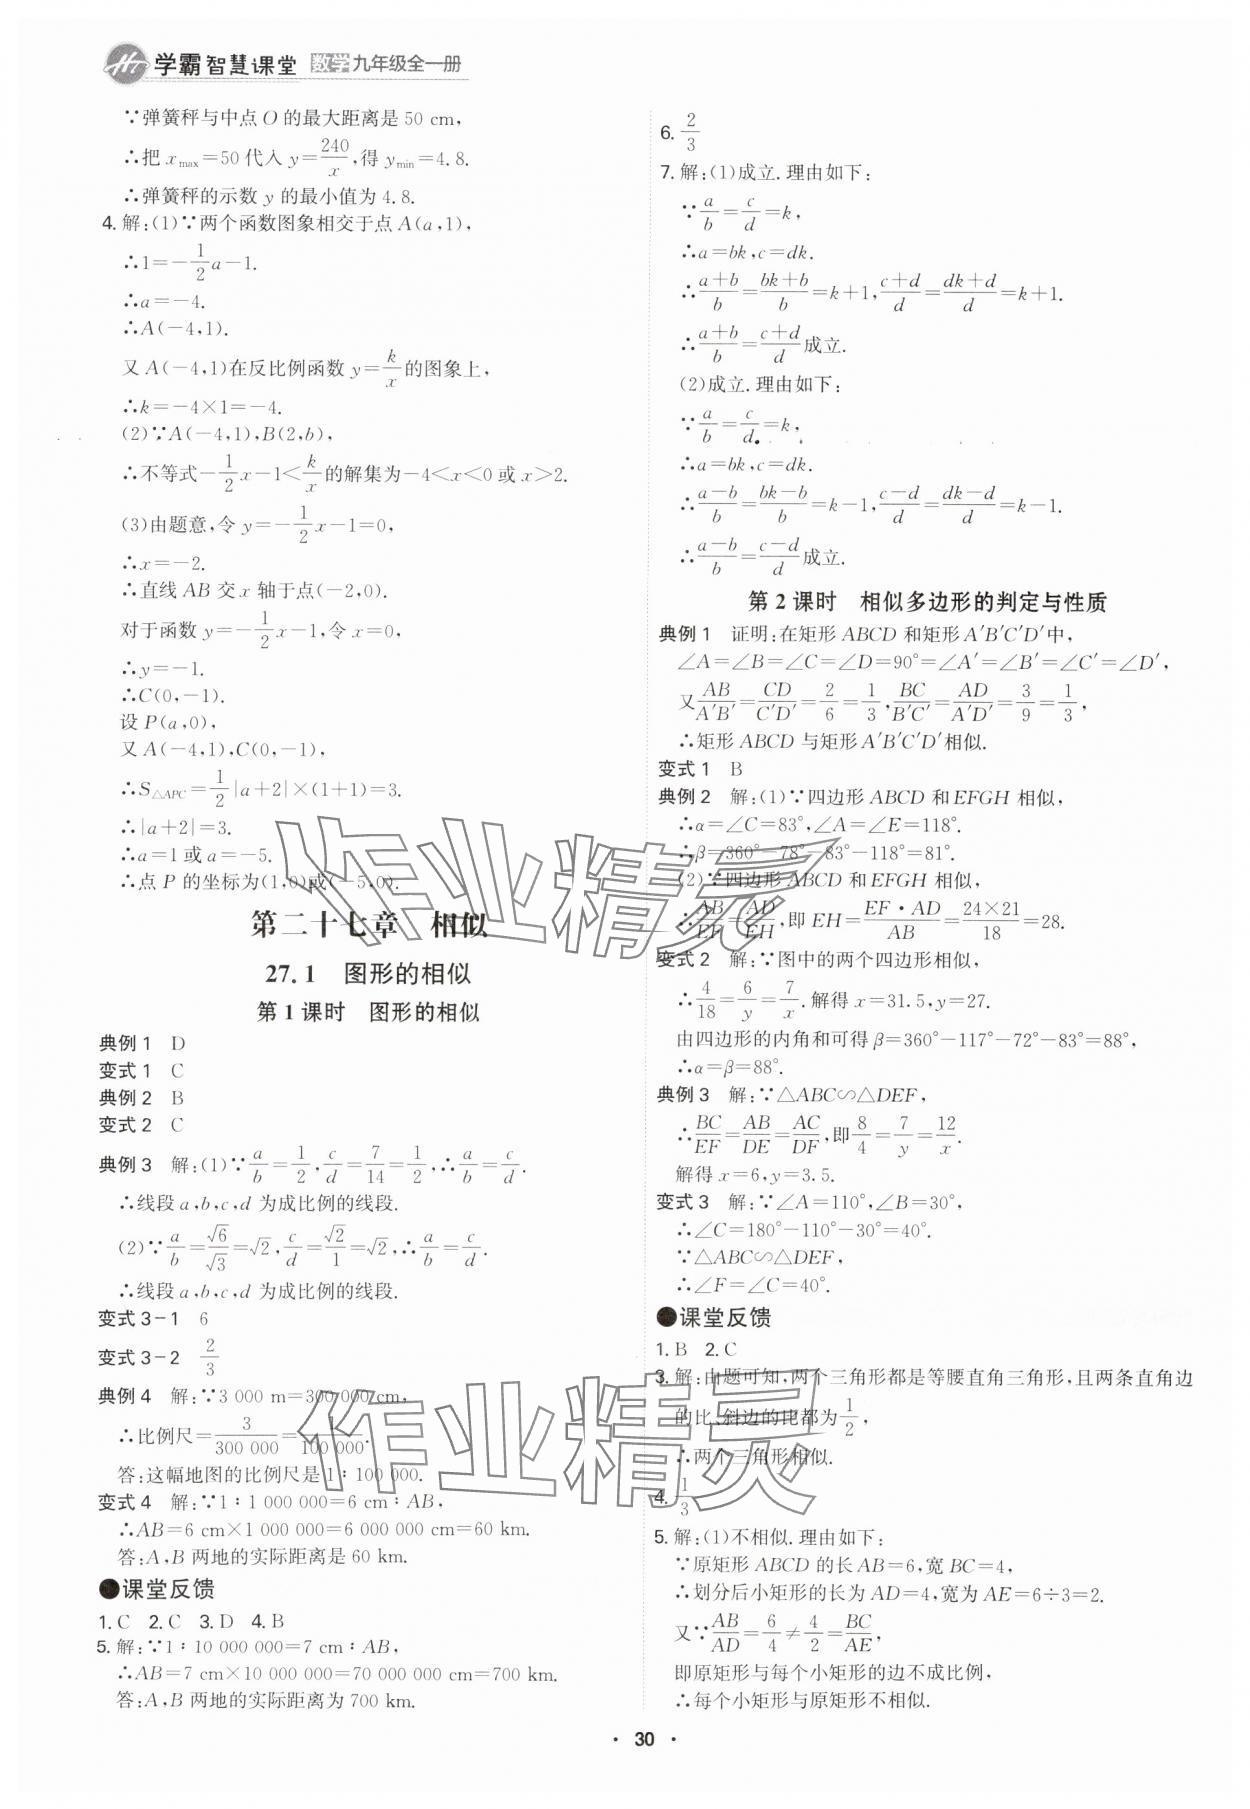 学霸智慧课堂 数学九年级全一册
∵弹簧秤与中点 O 的最大距离是 50 cm,
∴把 x_max=50 代入 y=240/x,得 y_min=4.8.
∴弹簧秤的示数 y 的最小值为 4.8.
4. 解:(1)∵两个函数图象相交于点 A(a,1),
∴1=-1/2 a-1.
∴a=-4.
∴A(-4,1).
又 A(-4,1)在反比例函数 y=k/x 的图象上,
∴k=-4×1=-4.
(2)∵A(-4,1),B(2,b),
∴不等式-1/2 x-1<k/x 的解集为-4<x<0 或 x>2.
(3)由题意,令 y=-1/2 x-1=0,
∴x=-2.
∴直线 AB 交 x 轴于点(-2,0).
对于函数 y=-1/2 x-1,令 x=0,
∴y=-1.
∴C(0,-1).
设 P(a,0),
又 A(-4,1),C(0,-1),
∴S△APC=1/2|a+2|×(1+1)=3.
∴|a+2|=3.
∴a=1 或 a=-5.
∴点 P 的坐标为(1,0)或(-5,0).
第二十七章 相似
27.1 图形的相似
第 1 课时 图形的相似
典例 1 D
变式 1 C
典例 2 B
变式 2 C
典例 3 解:(1)∵a/b=1/2,c/d=7/14=1/2,∴a/b=c/d.
∴线段 a,b,c,d 为成比例的线段.
(2)∵a/b=√6/√3=√2,c/d=√2/1=√2,∴a/b=c/d.
∴线段 a,b,c,d 为成比例的线段.
变式 3-1 6
变式 3-2 2/3
典例 4 解:∵3 000 m=300 000 cm,
∴比例尺=3/300 000=1/100 000.
答:这幅地图的比例尺是 1∶100 000.
变式 4 解:∵1∶1 000 000=6 cm∶AB,
∴AB=6 cm×1 000 000=6 000 000 cm=60 km.
答:A,B 两地的实际距离是 60 km.
●课堂反馈
1. C 2. C 3. D 4. B
5. 解:∵1∶10 000 000=7 cm∶AB,
∴AB=7 cm×10 000 000=70 000 000 cm=700 km.
答:A,B 两地的实际距离为 700 km.
6. 2/3
7. 解:(1)成立.理由如下:
∵a/b=c/d=k,
∴a=bk,c=dk.
∴(a+b)/b=(bk+b)/b=k+1,(c+d)/d=(dk+d)/d=k+1.
∴(a+b)/b=(c+d)/d成立.
(2)成立.理由如下:
∵a/b=c/d=k,
∴a=bk,c=dk.
∴(a-b)/b=(bk-b)/b=k-1,(c-d)/d=(dk-d)/d=k-1.
∴(a-b)/b=(c-d)/d成立.
第 2 课时 相似多边形的判定与性质
典例 1 证明:在矩形 ABCD 和矩形 A′B′C′D′中,
∠A=∠B=∠C=∠D=90°=∠A′=∠B′=∠C′=∠D′,
又AB/A′B′=CD/C′D′=2/6=1/3,BC/B′C′=AD/A′D′=3/9=1/3,
∴矩形 ABCD 与矩形 A′B′C′D′相似.
变式 1 B
典例 2 解:(1)∵四边形 ABCD 和 EFGH 相似,
∴α=∠C=83°,∠A=∠E=118°.
∴β=360°-78°-83°-118°=81°.
(2)∵四边形 ABCD 和 EFGH 相似,
∴AB/EF=AD/EH,即 EH=EF·AD/AB=24×21/18=28.
变式 2 解:∵图中的两个四边形相似,
∴4/18=6/y=7/x.解得 x=31.5,y=27.
由四边形的内角和可得 β=360°-117°-72°-83°=88°,
∴α=β=88°.
典例 3 解:∵△ABC∽△DEF,
∴BC/EF=AB/DE=AC/DF,即8/4=7/y=12/x.
解得 x=6,y=3.5.
变式 3 解:∵∠A=110°,∠B=30°,
∴∠C=180°-110°-30°=40°.
∵△ABC∽△DEF,
∴∠F=∠C=40°.
●课堂反馈
1. B 2. C
3. 解:由题可知,两个三角形都是等腰直角三角形,且两条直角边
的比、斜边的比都为1/2,
∴两个三角形相似.
4. 1/3
5. 解:(1)不相似.理由如下:
∵原矩形 ABCD 的长 AB=6,宽 BC=4,
∴划分后小矩形的长为 AD=4,宽为 AE=6÷3=2.
又∵AB/AD=6/4≠4/2=BC/AE,
即原矩形与每个小矩形的边不成比例,
∴每个小矩形与原矩形不相似.
· 30 ·
作业精灵
作业精灵